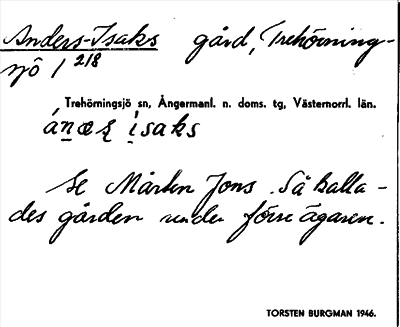 Anders-Isaks gård, Trehörning-
sjö 1 2/8
Trehörningsjö sn, Ångermanl. n. doms. tg, Västernorrl. län.
áṉæʂ ísaks
Se Mårten Jons. Så kalla-
des gården under förre ägaren.
TORSTEN BURGMAN 1946.